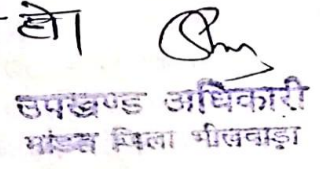 हो।
उपखण्ड अधिकारी
मांडल जिला भीलवाड़ा